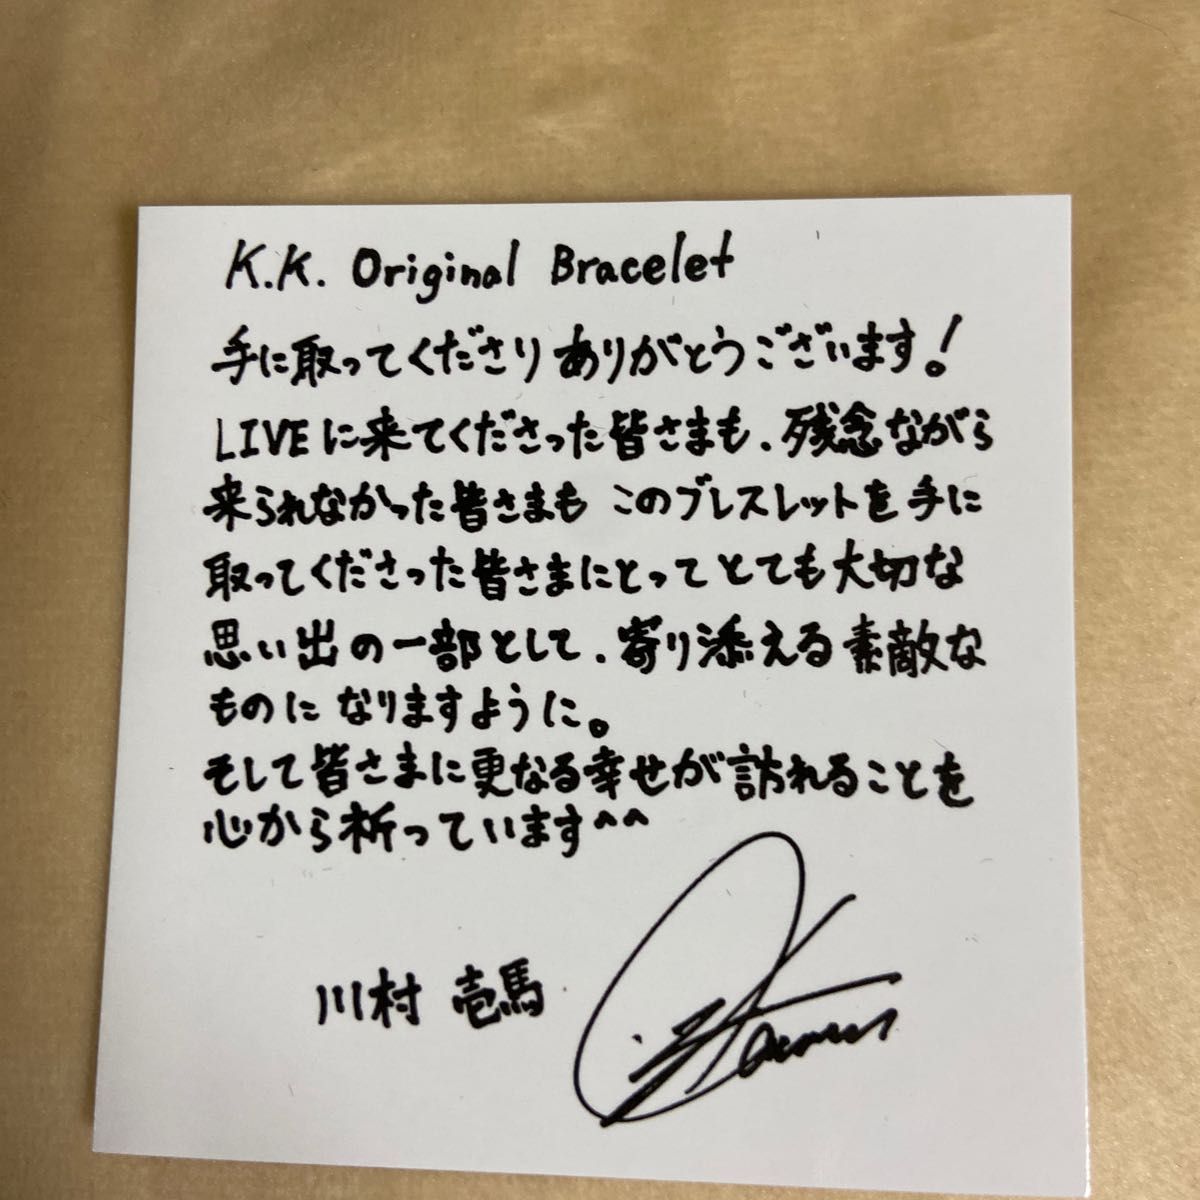 K.K. Original Bracelet
手に取ってくださりありがとうございます!
LIVEに来てくださった皆さまも、残念ながら
来られなかった皆さまも このブレスレットを手に
取ってくださった皆さまにとってとても大切な
思い出の一部として、寄り添える素敵な
ものになりますように。
そして皆さまに更なる幸せが訪れることを
心から祈っています^^
川村 壱馬